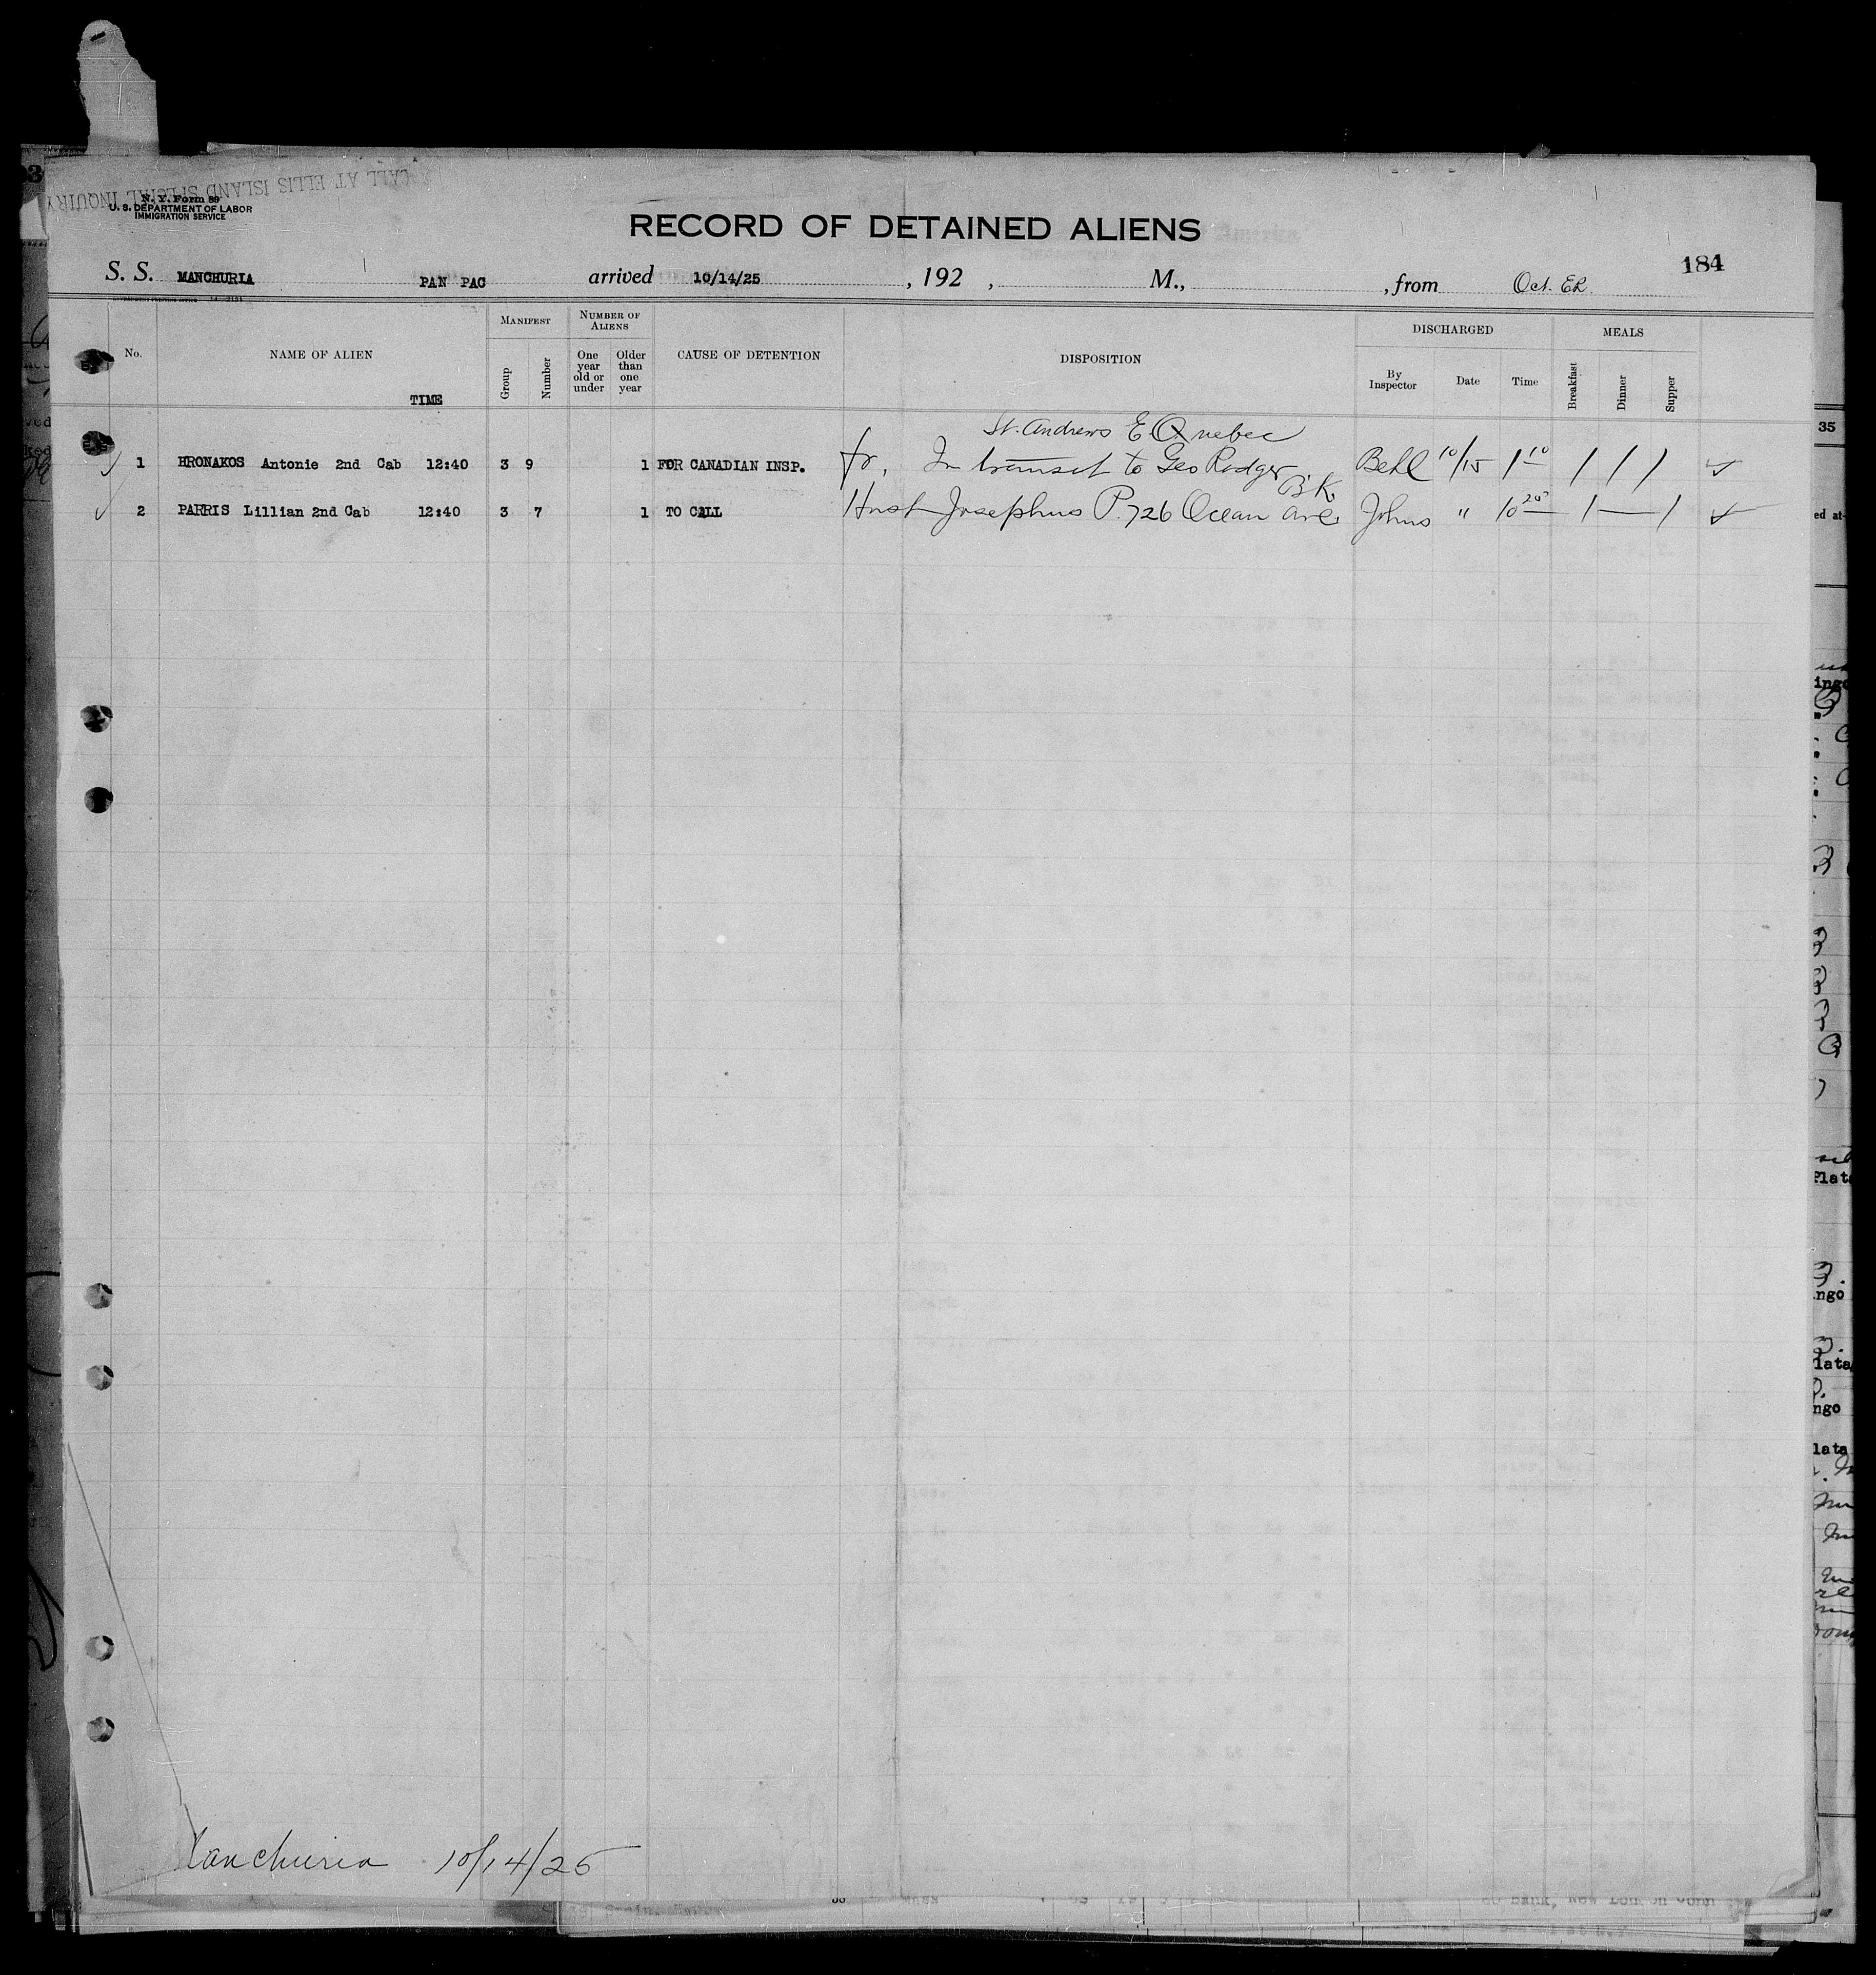 CALL AT ELLIS ISLAND SPECIAL INQUIRY
N. Y. Form 89
U. S. DEPARTMENT OF LABOR
IMMIGRATION SERVICE
RECORD OF DETAINED ALIENS
184
S. S. MANCHURIA PAN PAC arrived 10/14/25 , 192 , M., , from Oct. ER.
No. NAME OF ALIEN TIME MANIFEST Group Number NUMBER OF ALIENS One year old or under Older than one year CAUSE OF DETENTION DISPOSITION DISCHARGED By Inspector Date Time MEALS Breakfast Dinner Supper
St. Andrews E. Quebec
1 HRONAKOS Antonie 2nd Cab 12:40 3 9 1 FOR CANADIAN INSP. fr, In transit to Geo Rodger Behl 10/15 1 10 / / /
B'k
2 PARRIS Lillian 2nd Cab 12:40 3 7 1 TO CALL Husb Josephus P. 726 Ocean ave. Johns " 10 20 / — /
Manchuria 10/14/25
35
ed at
ingo
Plata
ngo
lata
ngo
lata
Bank, New London Conn